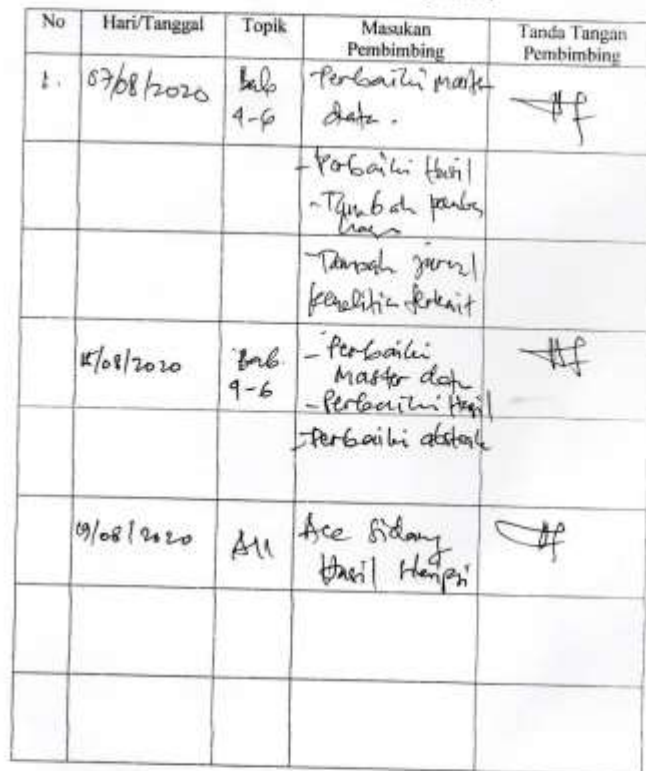 No Hari/Tanggal Topik Masukan Pembimbing Tanda Tangan Pembimbing
1. 07/08/2020 Bab 4-6 -Perbaiki Master data.
- Perbaiki Hasil
- Tambah pembahasan
- Tambah jurnal
penelitian terkait
15/08/2020 Bab 4-6 - Perbaiki
Master data
- Perbaiki Hasil
- Perbaiki abstrak
19/08/2020 All Acc Sidang
Hasil Skripsi